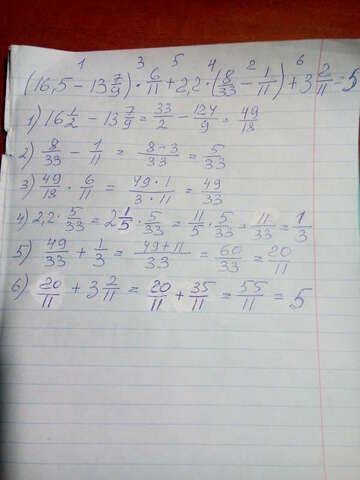 1 3 5 4 2 6
(16,5 − 13 7/9) · 6/11 + 2,2 · (8/33 − 1/11) + 3 2/11 = 5
1) 16 1/2 − 13 7/9 = 33/2 − 124/9 = 49/18
2) 8/33 − 1/11 = 8−3/33 = 5/33
3) 49/18 · 6/11 = 49·1/3·11 = 49/33
4) 2,2 · 5/33 = 2 1/5 · 5/33 = 11/5 · 5/33 = 11/33 = 1/3
5) 49/33 + 1/3 = 49+11/33 = 60/33 = 20/11
6) 20/11 + 3 2/11 = 20/11 + 35/11 = 55/11 = 5